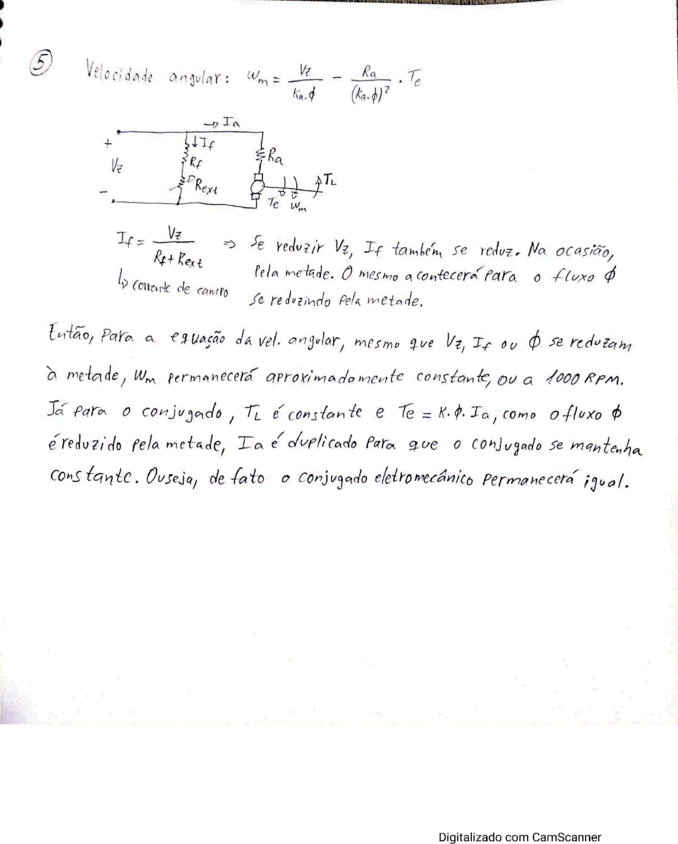 5 Velocidade angular: Wm = Vz / Ka.ϕ - Ra / (Ka.ϕ)² . Te
→ Ia
+ ↓If Ra
Vz Rf
- Rext TL
Te Wm
If = Vz / Rf + Rext ⇒ Se reduzir Vz, If também se reduz. Na ocasião,
Pela metade. O mesmo acontecerá para o fluxo ϕ
↳ corrente de campo se reduzindo pela metade.
Então, Para a equação da vel. angular, mesmo que Vz, If ou ϕ se reduzam
à metade, Wm permanecerá aproximadamente constante, ou a 1000 RPM.
Já para o conjugado, TL é constante e Te = K.ϕ.Ia, como o fluxo ϕ
é reduzido pela metade, Ia é duplicado Para que o conjugado se mantenha
constante. Ou seja, de fato o conjugado eletromecânico Permanecerá igual.
Digitalizado com CamScanner